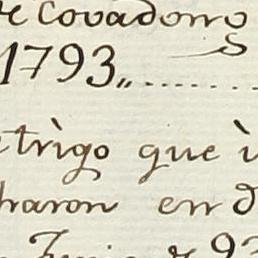 de Covadong
1793,,......
trigo que
haron en d
Junio de 93